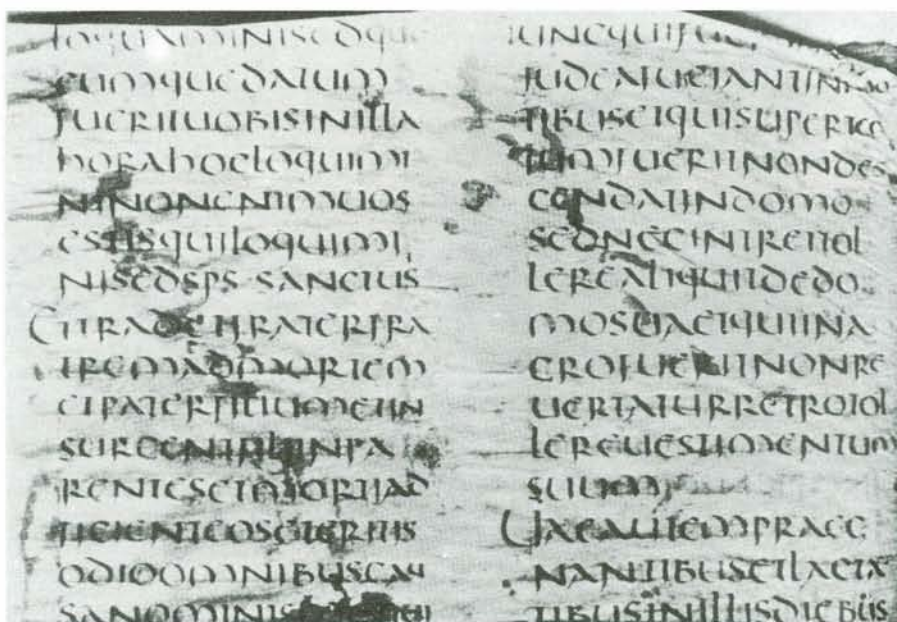 LOQUAMINISEDQUO
CUMQUEDATUM
FUERITUOBISINILLA
HORAHOCLOQUIMI
NINONENIMUOS
ESTISQUILOQUIMI
NISEDSPS·SANCTUS
ETTRADETFRATERFRA
TREMADMORTEM
ETPATERFILIUMETIN
SURGENTFILIINPA
RENTESETMORTIAD
FICIENTEOSETERITIS
ODIOOMNIBUSCAU
SANOMINIS
TUNCQUIFUE
IUDEAFUGIANTINMO
TIBUSETQUISUPERTEC
TUMFUERITNONDES
CENDATINDOMO
SEDNECINTRETTOL
LEREALIQUIDDEDO
MOSUAETQUIINA
GROFUERITNONRE
UERTATURRETROTOL
LEREUESTIMENTUM
SUUM
UAEAUTEMPRAEG
NANTIBUSETLACTA
TIBUSINILLISDIEBUS